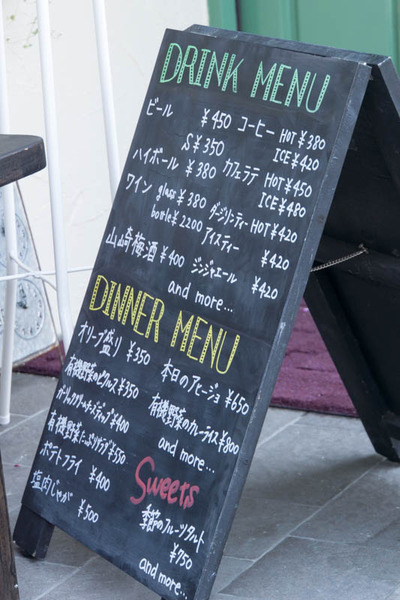 DRINK MENU
ビール ¥450
S¥350
ハイボール ¥380
ワイン glass ¥380
bottle ¥2200
山崎梅酒 ¥400
コーヒー HOT¥380
ICE¥420
カフェラテ HOT¥450
ICE¥480
ダージリンティー HOT¥420
アイスティー ¥420
ジンジャエール ¥420
and more...
DINNER MENU
オリーブ盛り ¥350
有機野菜のピクルス ¥350
¥400
有機野菜 ¥550
ポテトフライ ¥400
塩肉じゃが ¥500
本日のアヒージョ ¥650
有機野菜のカレーライス ¥800
and more...
Sweets
季節のフルーツタルト
¥750
and more...